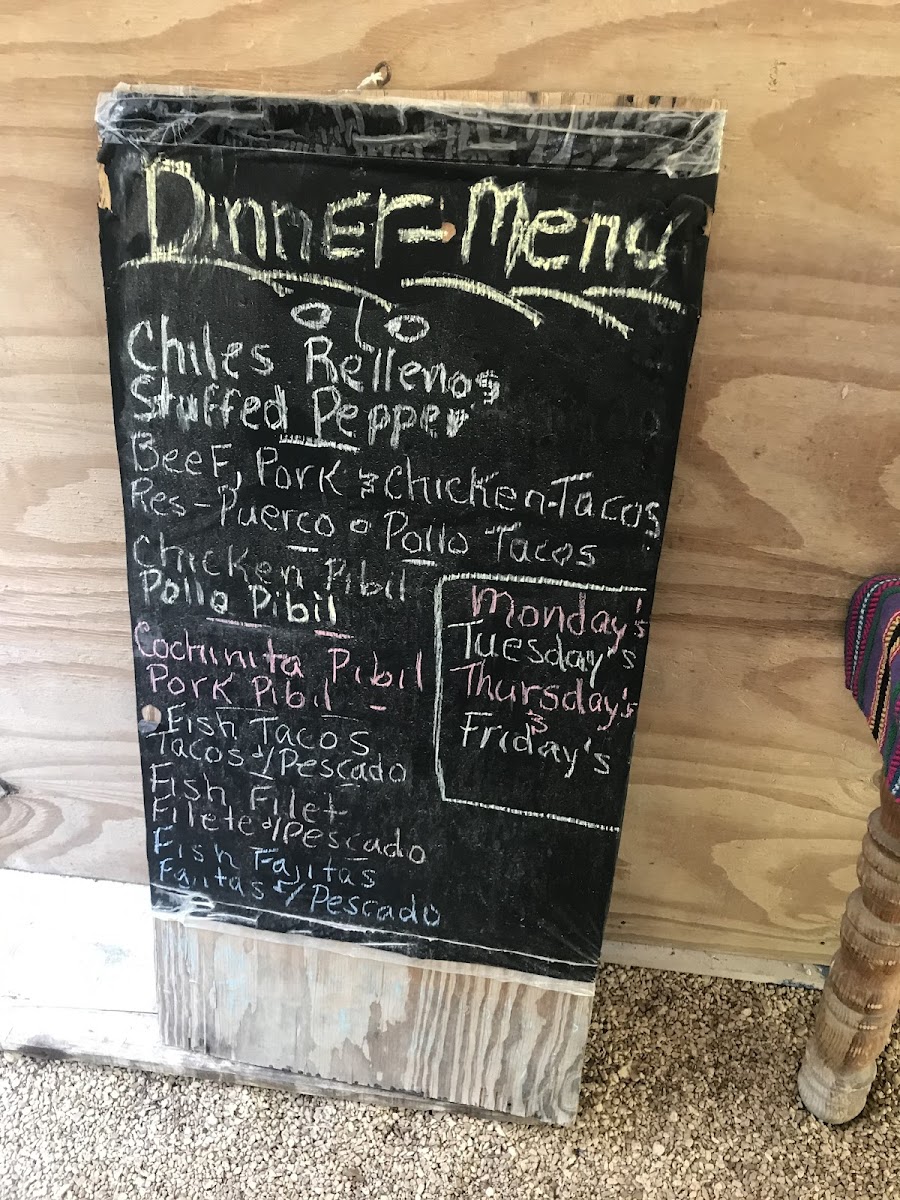 Dinner-Menu
Chiles Rellenos
Stuffed Pepper
Beef, Pork & Chicken-Tacos
Res-Puerco o Pollo Tacos
Chicken Pibil
Pollo Pibil
Cochinita Pibil
Pork Pibil
Fish Tacos
Tacos d/Pescado
Fish Filet
Filete d/Pescado
Fish Fajitas
Fajitas d/Pescado
Monday's
Tuesday's
Thursday's
&
Friday's